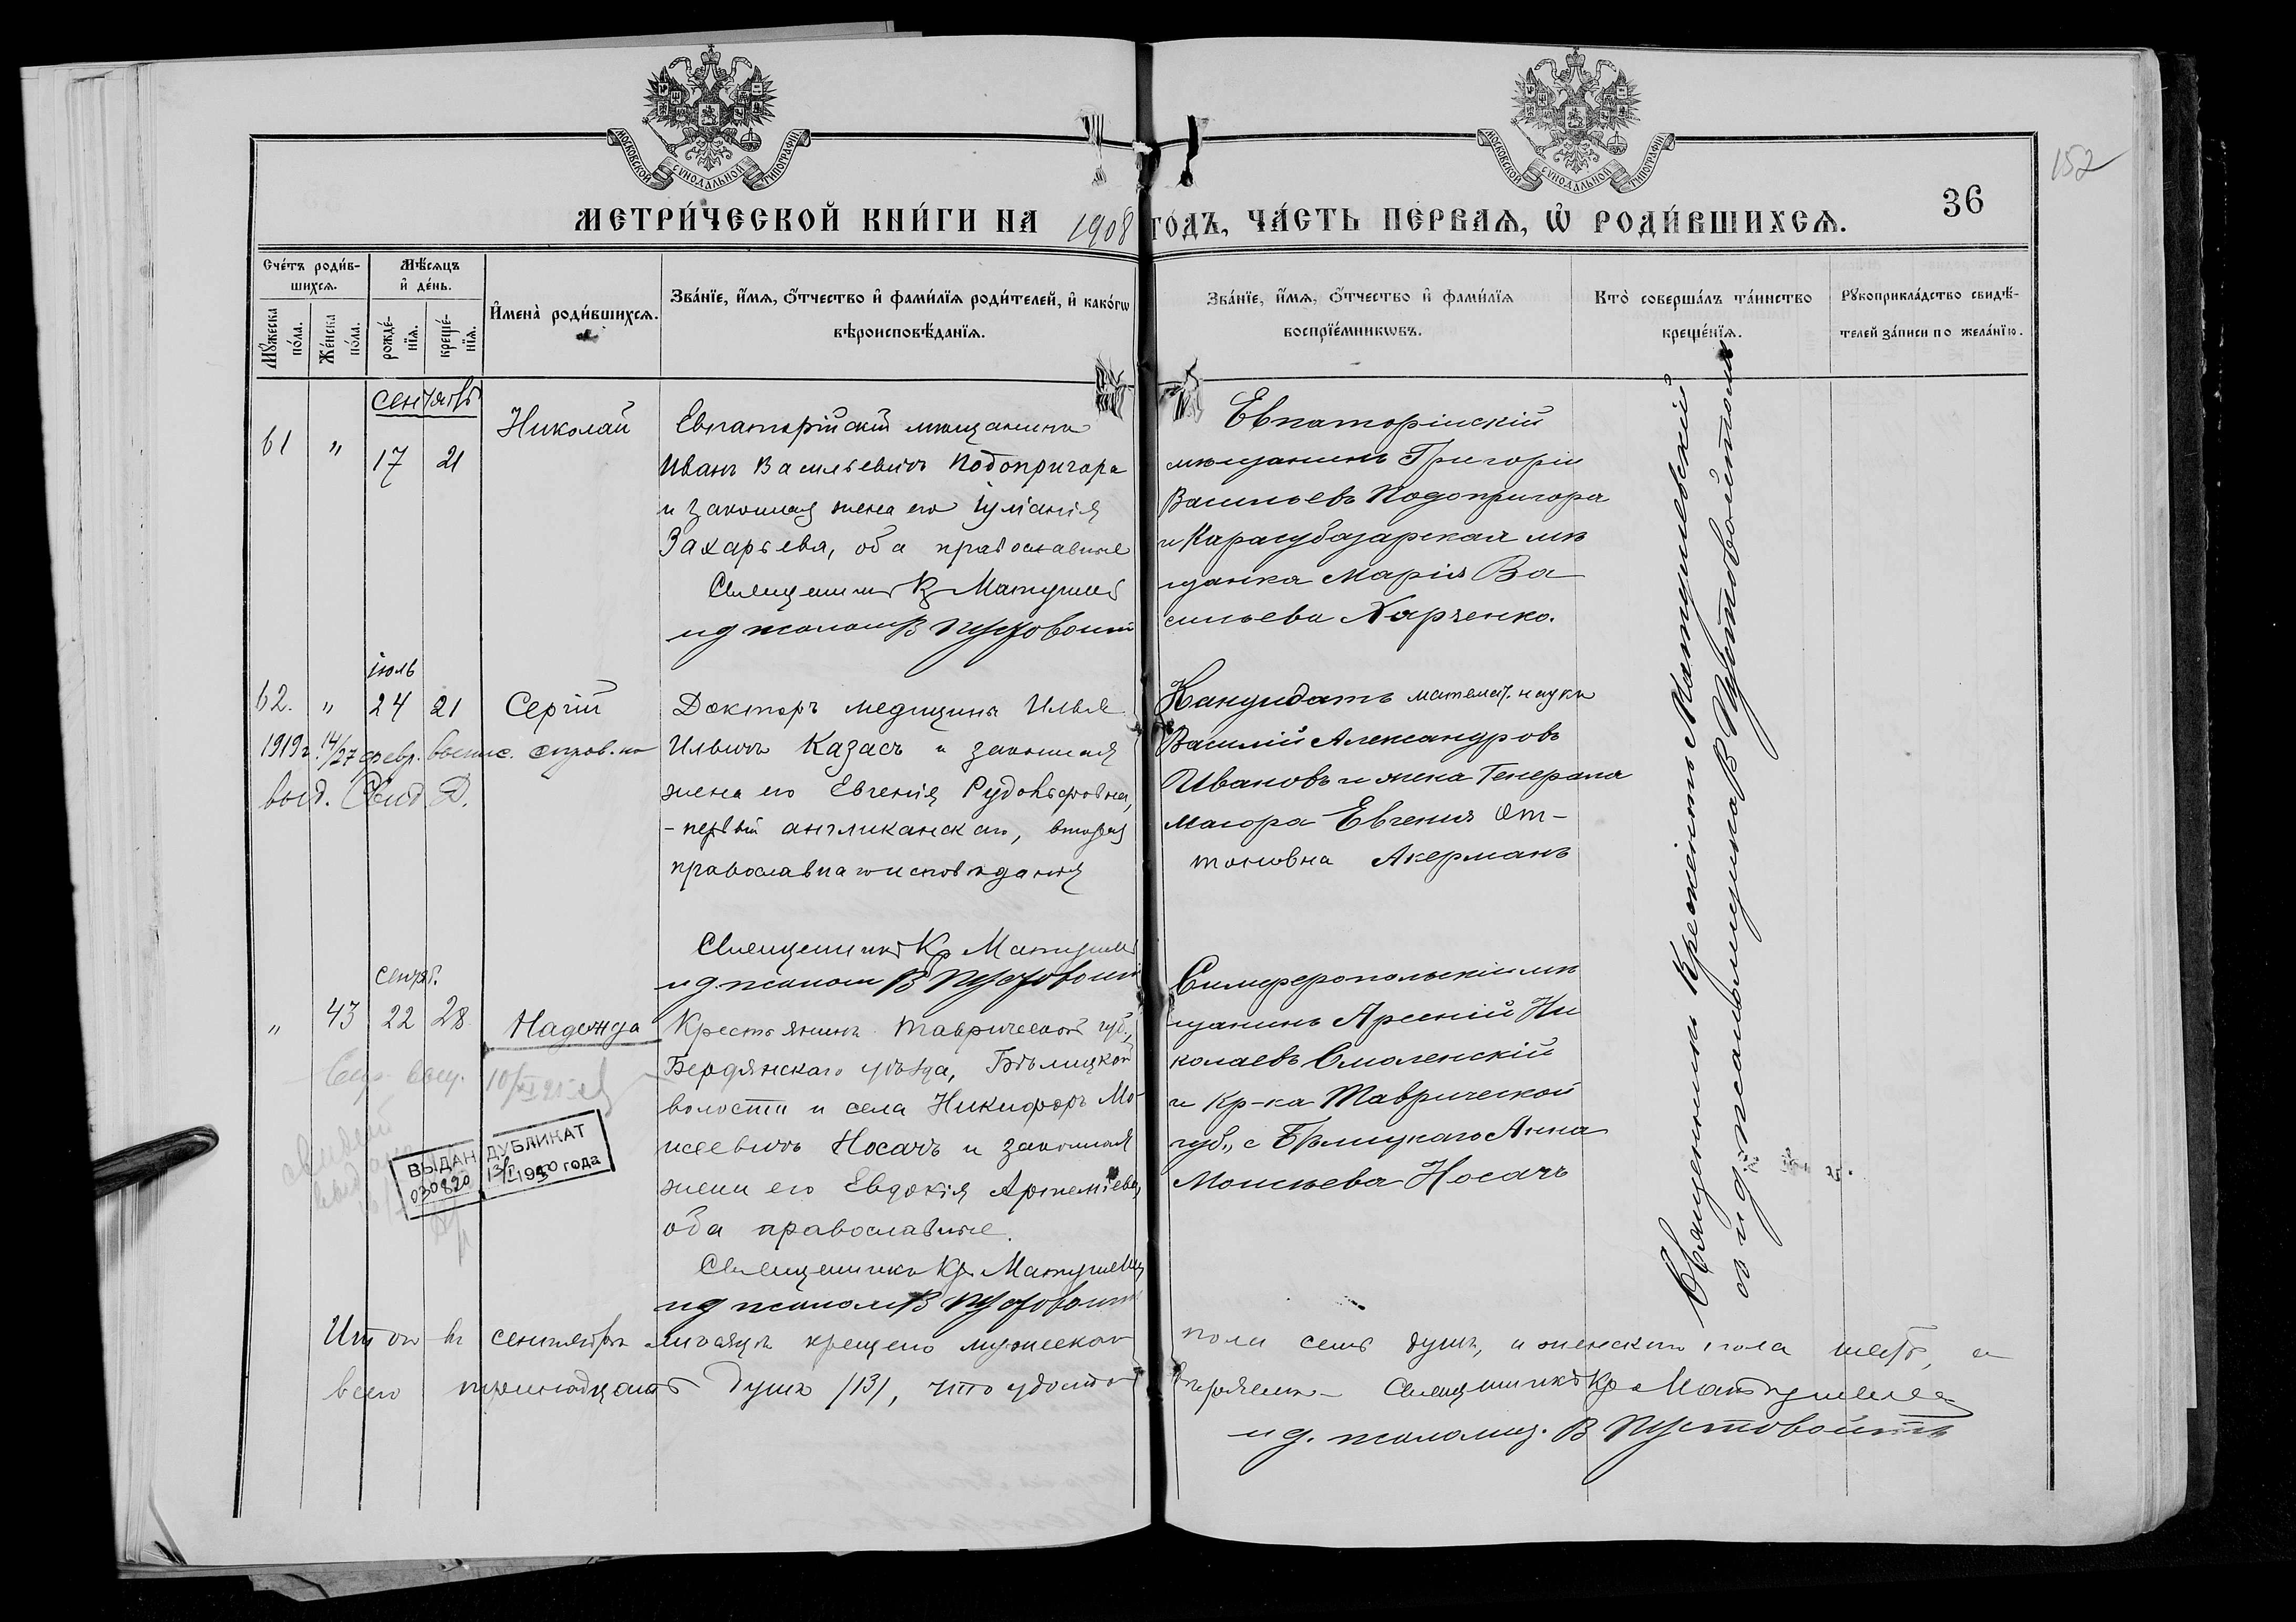 МОСКОВСКОЙ СѴНОДАЛЬНОЙ ТИПОГРАФІИ
МОСКОВСКОЙ СѴНОДАЛЬНОЙ ТИПОГРАФІИ
152
36
МЕТРИ́ЧЕСКОЙ КНИ́ГИ НА 1908 ГО́ДЪ, ЧА́СТЬ ПЕ́РВАѦ, Ѡ҆ РОДИ́ВШИХСѦ.
Сче́тъ роди́в-
шихсѧ.
Мꙋ́жеска по́ла.
Же́нска по́ла.
Мѣ́сѧцъ
и҆ де́нь.
рожде́-нїѧ.
креще́-нїѧ.
И҆мена̀ роди́вшихсѧ.
Зва́нїе, и҆́мѧ, ѻ҆́тчество и҆ фами́лїѧ роди́телей, и҆ како́гѡ
вѣроисповѣ́данїѧ.
Зва́нїе, и҆́мѧ, ѻ҆́тчество и҆ фами́лїѧ
воспрїе́мникѡвъ.
Кто̀ соверша́лъ та́инство
креще́нїѧ.
Рꙋкоприкла́дство свидѣ́-
телей за́писи по жела́нїю.
сентябрь
61 " 17 21 Николай
Евпаторійскій мещанинъ
Иванъ Васильевичъ Подопригора
и законная жена его Іуліанія
Захарьева, оба православные
Священникъ Кр Матушев
и д псаломщ В Пустовойтъ
Евпаторійскій
мѣщанинъ Григорій
Васильевъ Подопригора
и Карасубазарская мѣ
щанка Марія Ва
сильева Харченко.
іюль
62. " 24 21 Сергій
1919 г. 14/27 февр. выпис. справ. на
выд. Свид
Докторъ медицины Илья
Ильичъ Казасъ и законная
жена его Евгенія Рудольфовна,
- первый англиканскаго, вторая
православнаго исповѣданія
Священникъ Кр Матушев
и д. псалом В Пустовойтъ
Кандидатъ математ. науки
Василій Александровъ
Ивановъ и жена Генерала
Маіора Евгенія От-
тоновна Акерманъ
сентяб.
" 43 22 28 Надежда
10/XI 25
ВЫДАН ДУБЛИКАТ
030820 13/I 1950 года
Крестьянинъ Таврической губ.,
Бердянскаго уѣзда, Бѣлицкой
волости и села Никифоръ Мо-
исеевичъ Носачъ и законная
жена его Евдокія Артеміева,
оба православные.
Священникъ Кр Матушевск
и д псаломщ В Пустовойтъ
Симферопольскій мѣ
щанинъ Арсеній Ни
колаевъ Смоленскій
и Кр-ка Таврической
губ., с Бѣлицкаго Анна
Моисеева Носачъ
Священникъ Кр Матушевскій
со и д псаломщика В Пустовойтомъ
Итого въ сентябрѣ мѣсяцѣ крещено мужескаго пола семь душъ, и женскаго пола шесть, а
всего тринадцать душъ /13/, что удосто вѣряемъ Священникъ Кр Матушевск
и д. псаломщ. В Пустовойтъ